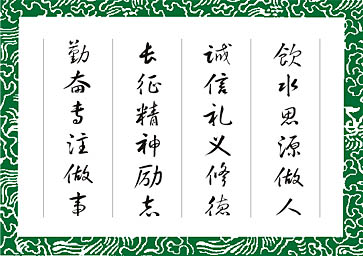 飲水思源做人
诚信礼义修德
长征精神励志
勤奋专注做事